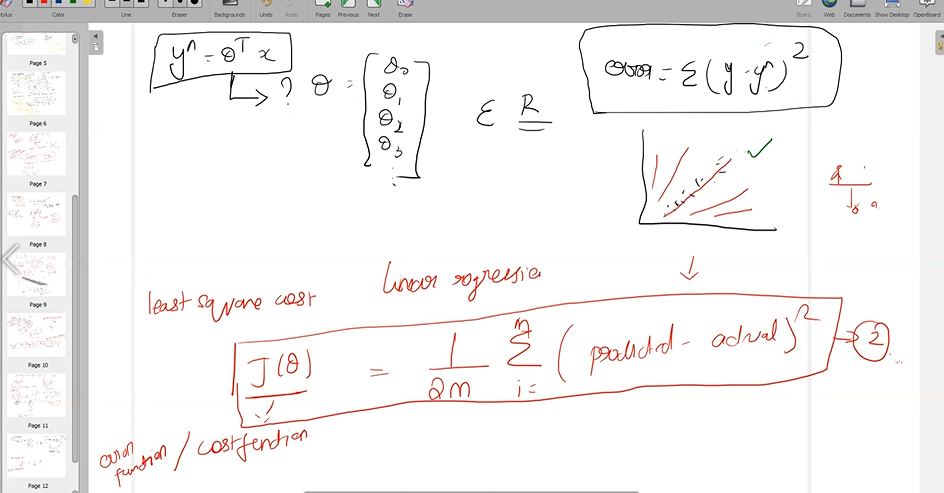 Styles
Color
Line
Eraser
Backgrounds
Undo
Redo
Pages
Previous
Next
Erase
Board
Web
Documents
Show Desktop
OpenBoard
Page 5
Page 6
Page 7
Page 8
Page 9
Page 10
Page 11
Page 12
y^ = θᵀ x
? θ = [θ₀ θ₁ θ₂ θ₃ ⋮]
ε R
error = Σ(y - y^)²
linear regressio
least square cost
J(θ) = 1/2m Σ i= (predicted - actual)² → 2
error function / cost function